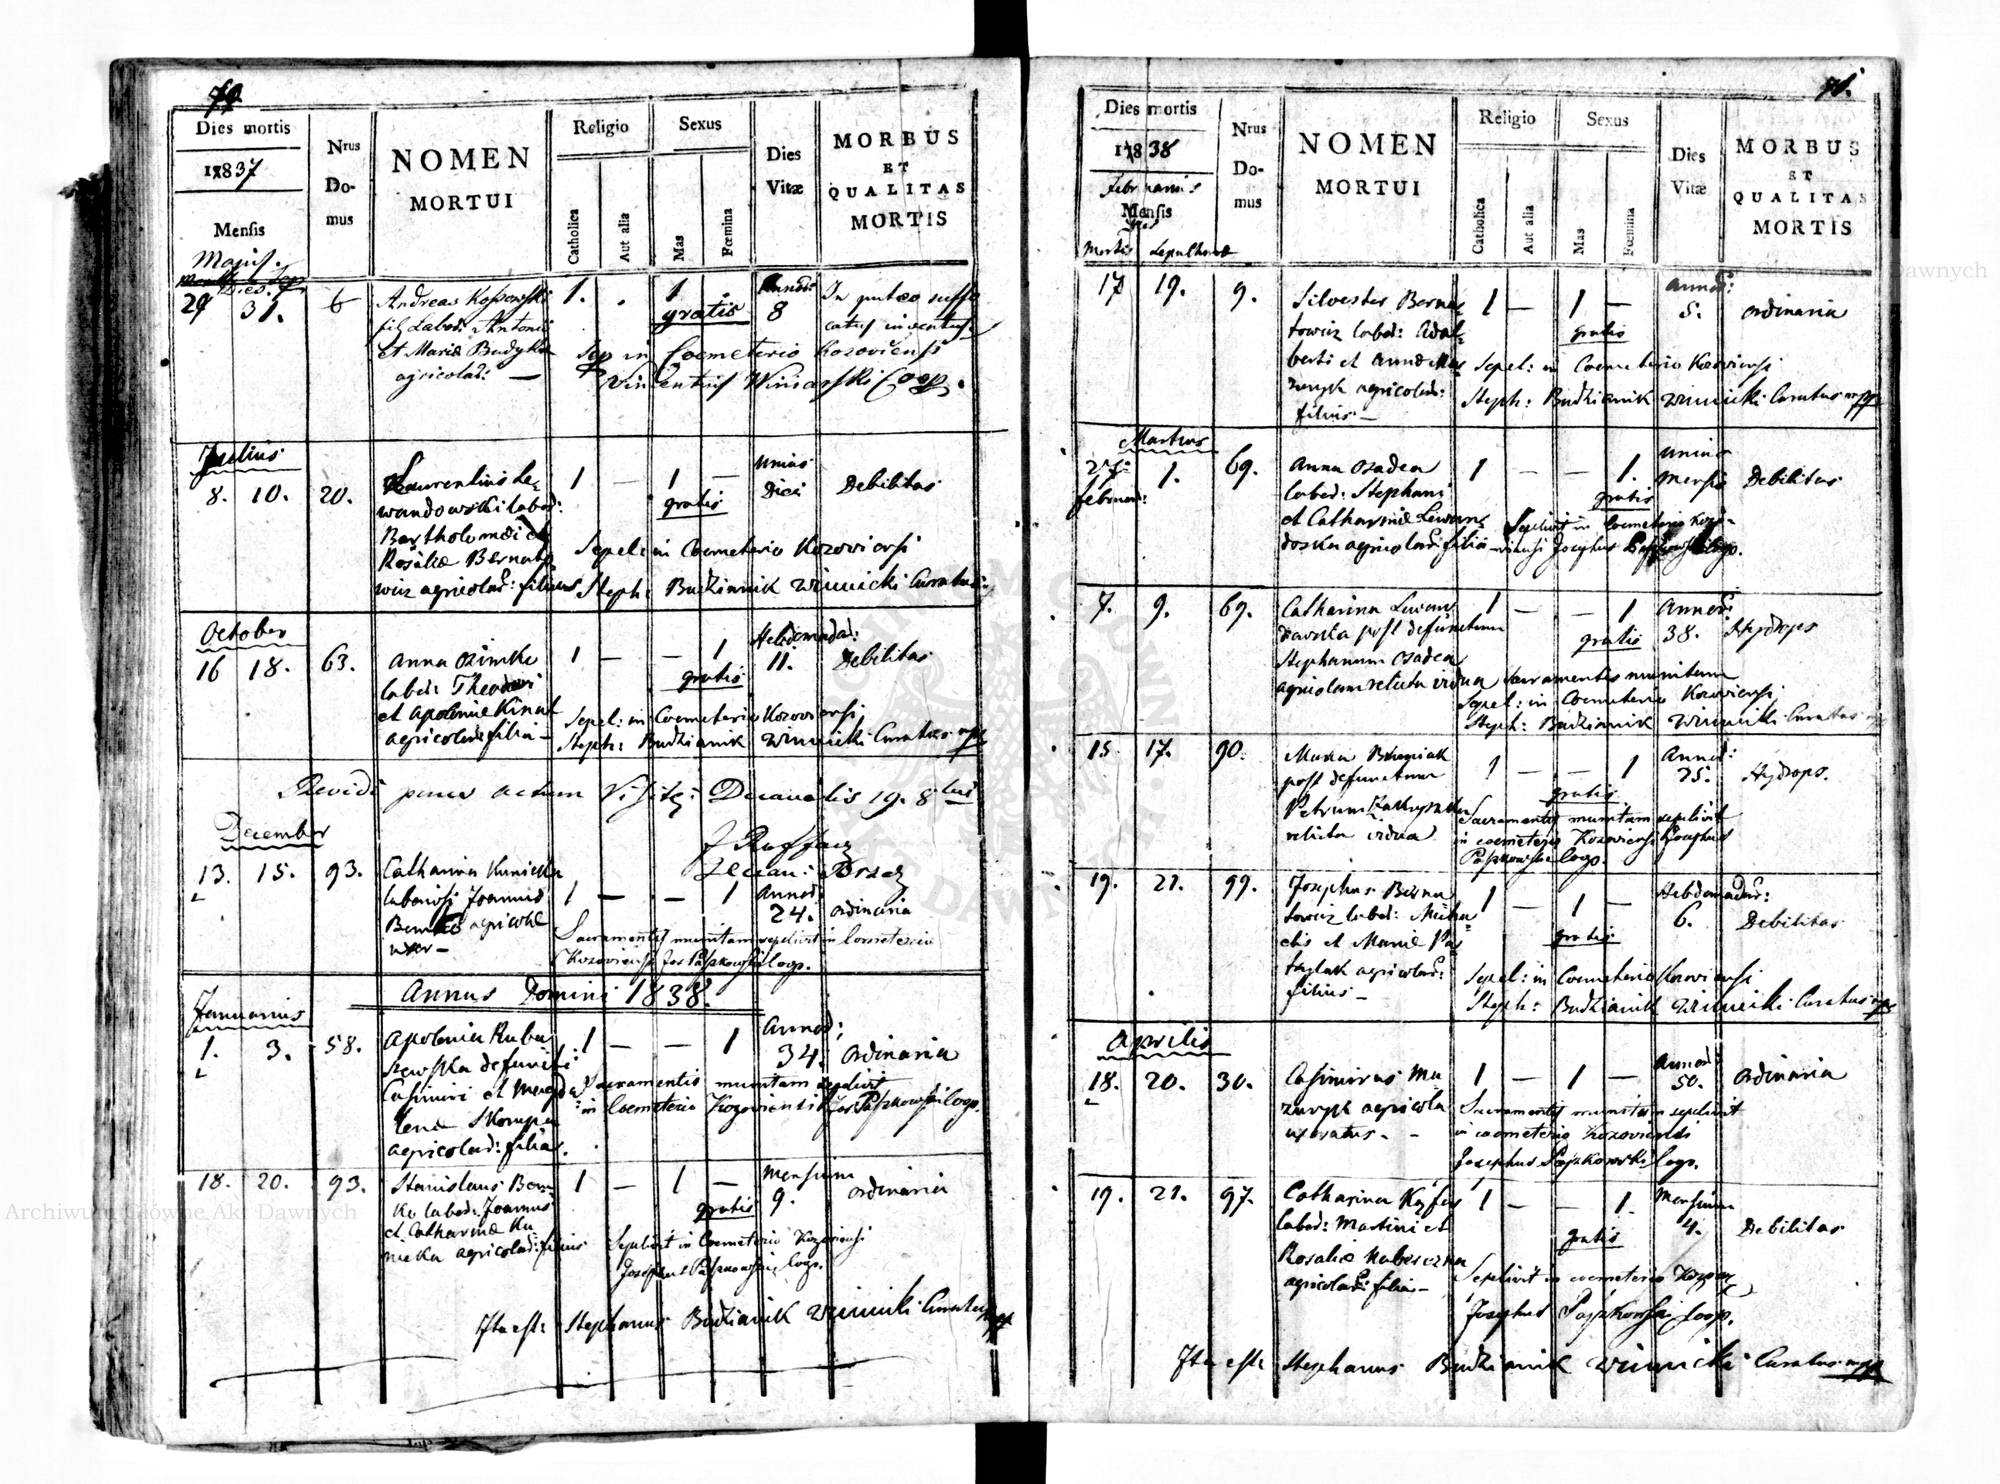 70
Dies mortis
1837
Mensis
Majus.
Nrus
Do-
mus
NOMEN
MORTUI
Religio
Catholica
Aut alia
Sexus
Mas
Fœmina
Dies
Vitæ
MORBUS
ET
QUALITAS
MORTIS
29 31. 6 Andreas Kossowski 1. . 1 . Annor: 8 In puteo suffo
fil. Labor: Antonii gratis catus inventus
et Mariæ Budyka Sep in Coemeterio Kozoviensi
agricolar: — Vincentius Winiarski Coop.
Julius
8. 10. 20. Laurentius Le- 1 — 1 — unius Diei Debilitas
wandowski labor: gratis
Bartholomæi et
Rosaliæ Bernato Sepel: in Coemeterio Kozoviensi
wicz agricolar: filius Steph: Budzianik Winnicki Curatus
October
16 18. 63. Anna Ozimko 1 — — 1 Hebdomadar: 11. Debilitas
labor: Theodori gratis
et Apoloniæ Kinat Sepel: in Coemeterio Kozoviensi
agricolar: filia — Steph: Budzianik Winnicki Curatus mpp
Revidi penes actum Visit: Decanalis 19. 8
December
Decan: Brzez
13. 15. 93. Catharina Kunicka 1 — — 1 Annor: 24. ordinaria
laboriosi Joannis
agricolæ Sacramentis munitam sepelivit in Coemeterio
uxor — Kozoviensi Jos Paszkowski Coop.
Annus Domini 1838.
Januarius
1. 3. 58. Apolonia Kuba 1 — — 1 Annor: 34. ordinaria
szewska defuncti
Casimiri et Magda Sacramentis munitam sepelivit
lenæ Skompa in Coemeterio Kozoviensi Jos Paszkowski Coop.
agricolar: filia.
18. 20. 93. Stanislaus Bem 1 — 1 — Mensium 9. ordinaria
ko labor: Joannis gratis
et Catharinæ Ku Sepelivit in Coemeterio Kozoviensi
nicka agricolar: filius Josephus Paszkowski Coop.
Ita est: Stephanus Budzianik Winnicki Curatus mpp
71.
Dies mortis
1838
Februarius
Mensis
Dies
Mortis Sepulturæ
Nrus
Do-
mus
NOMEN
MORTUI
Religio
Catholica
Aut alia
Sexus
Mas
Fœmina
Dies
Vitæ
MORBUS
ET
QUALITAS
MORTIS
17 19. 9. Silvester Berna 1 — 1 — Annor: 5. ordinaria
towicz labor: Adal- gratis
berti et Annæ Ma Sepel: in Coemeterio Kozoviensi
zuryk agricolar: Steph: Budzianik Winnicki Curatus mpp
filius —
Martius
27 Februar: 1. 69. Anna Osadca 1 — — 1. unius Mensis Debilitas
labor: Stephani gratis
et Catharinæ Lewan Sepelivit in Coemeterio Kozo-
doska agricolar: filia — viensi Josephus Paszkowski Coop.
7. 9. 69. Catharina Lewan 1 — — 1 Annor: 38. Hydrops
dowska post defunctum gratis
Stephanum Osadca
agricolam relicta vidua Sacramentis munitam
Sepel: in Coemeterio Kozoviensi
Steph: Budzianik Winnicki Curatus mpp
15 17. 90. Maria 1 — — 1 Annor: 75. Hydrops.
post defunctum gratis
Petrum Sacramentis munitam sepelivit
relicta vidua in coemeterio Kozoviensi Josephus
Paszkowski Coop.
19. 21. 99. Josephus Berna 1 — 1 — Hebdomadar: 6. Debilitas
towicz labor: Micha gratis
elis et Mariæ
agricolar: Sepel: in Coemeterio Kozoviensi
filius — Steph: Budzianik Winnicki Curatus mpp
Aprilis
18. 20. 30. Casimirus Ma 1 — 1 — Annor: 50. ordinaria
zuryk agricola Sacramentis munitum sepelivit
uxoratus — in coemeterio Kozoviensi
Josephus Paszkowski Coop.
19. 21. 97. Catharina Kyfus 1 — — 1. Mensium 4. Debilitas
labor: Martini et gratis
Rosaliæ Sepelivit in coemeterio
agricolar: filia — Josephus Paszkowski Coop.
Ita est: Stephanus Budzianik Winnicki Curatus mpp
Archiwum Główne Akt Dawnych
Archiwum Główne Akt Dawnych
ARCHIWUM GŁÓWNE AKT DAWNYCH